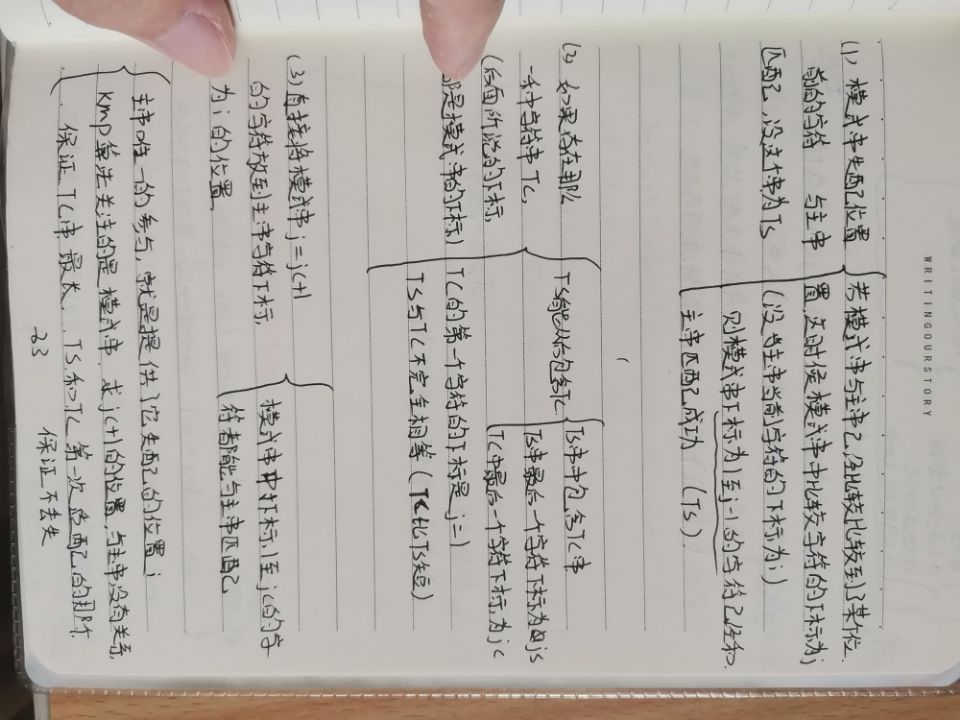 WRITINGOURSTORY
(1) 模式串失配位置
前的字符 与主串
匹配,设这个串为Ts
若模式串与主串已经比较比较到了某个位
置,这时候模式串中比较字符的下标为j
(设当主串当前字符的下标为i)
则模式串下标为1至j-1的字符已经和
主串匹配成功 (Ts).
(2) 如果存在那么
一个串字符串TC,
(后面所说的下标,
都是模式串的下标)
TS能从后包含TC
TS串中包含TC串
TS串最后一个字符下标为js
TC中最后一个字符下标为jc
TC的第一个字符的下标是j=1
TS与TC不完全相等(TC比TS短)
(3) 直接将模式串j=jc+1
的字符放到主串字符下标,
为i的位置
模式串中下标1至jc的字
符都能与主串匹配
主串唯一的参与,就是提供了它失配的位置i
Kmp算法关注的是模式串,求jc+1的位置,与主串没有关系,
保证TC串最长,TS和TC第一次适配的那个
保证不丢失
23